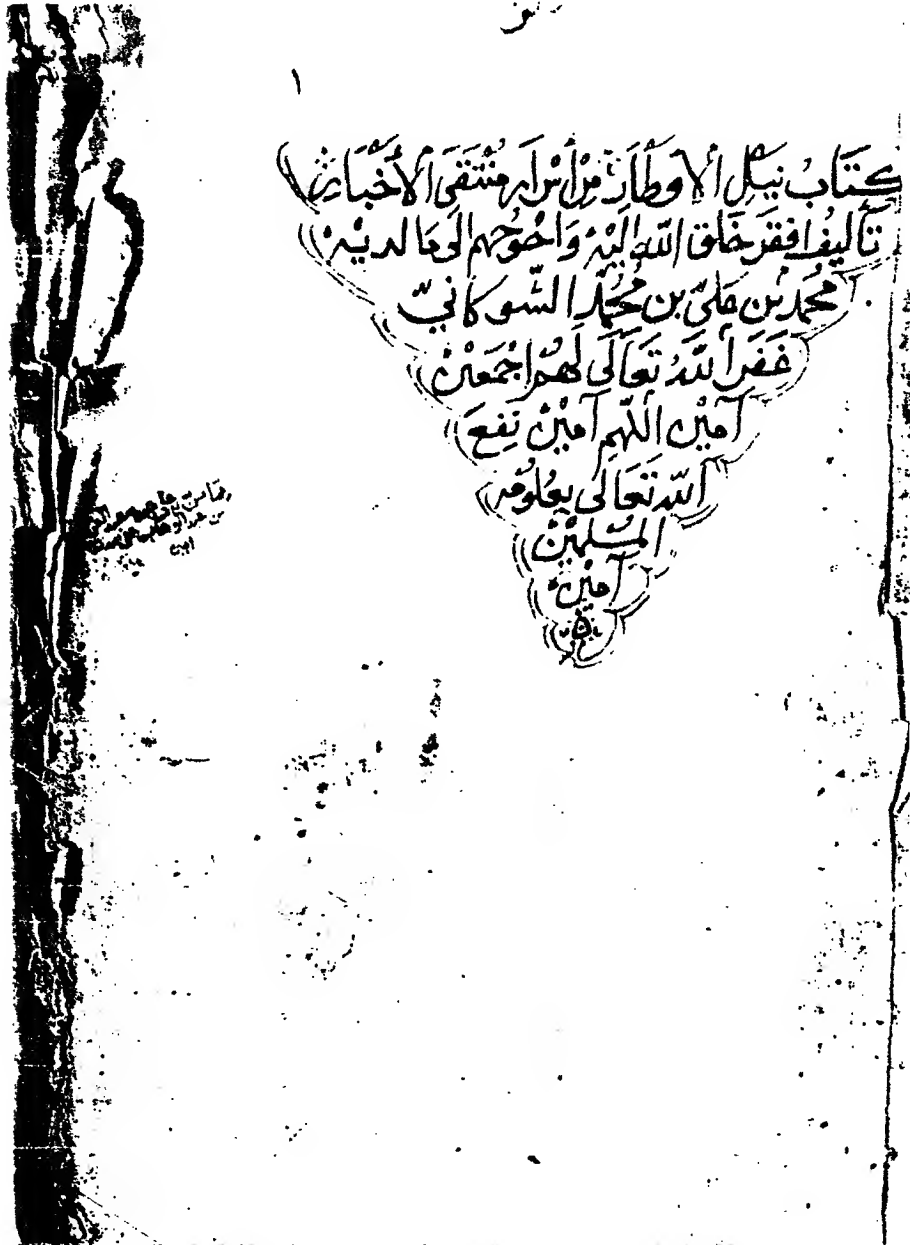 ١
كتَابُ نَيْلِ الأوطَار مِنْ أسْرَارِ مُنْتَقَى الأَخْبَار
تَأليفُ افقر خَلق اللّه اليْهِ وَاحْوجهم الَى مَا لديْهِ
مُحمد بن عَليّ بن مُحمّد الشّوكَانيّ
غَفَر اللّهُ تَعَالَى لَهُم اجْمَعيْنَ
آميْن اللّهم آميْن نَفعَ
اللّه تَعَالَى بعُلُومِه
المُسْلميْنَ
آميْن